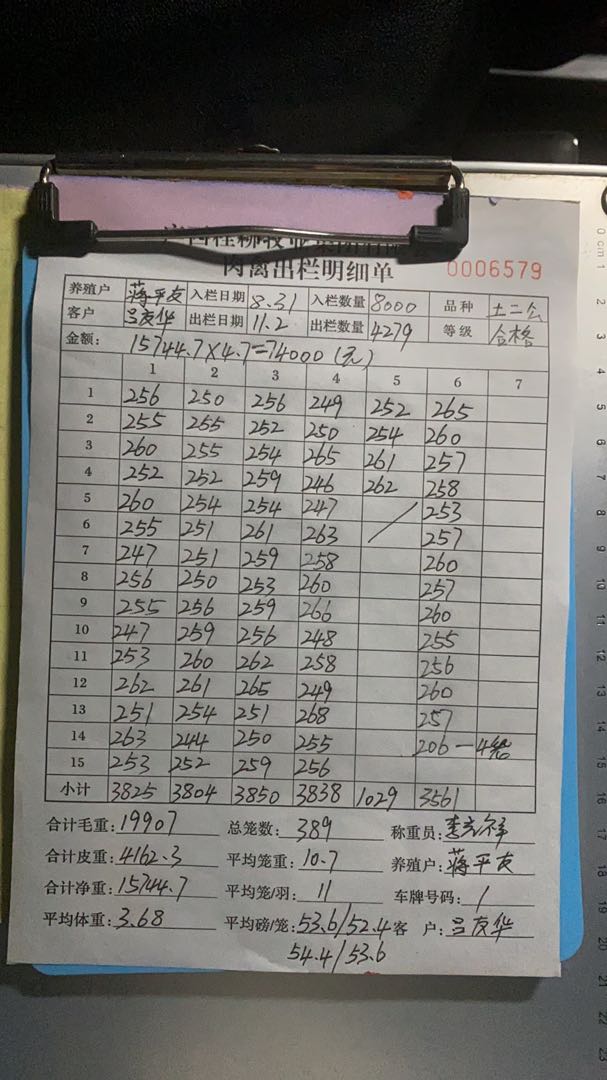 肉禽出栏明细单 0006579
养殖户 蒋平友 入栏日期 8.31 入栏数量 8000 品种 土二公
客户 吕友华 出栏日期 11.2 出栏数量 4279 等级 合格
金额: 15744.7×4.7=74000(元)
1 2 3 4 5 6 7
1 256 250 256 249 252 265
2 255 255 252 250 254 260
3 260 255 254 265 261 257
4 252 252 259 246 262 258
5 260 254 254 247 / 253
6 255 251 261 263 257
7 247 251 259 258 260
8 256 250 253 260 257
9 255 256 259 266 260
10 247 259 256 248 255
11 253 260 262 258 256
12 262 261 265 249 260
13 251 254 251 268 257
14 263 244 250 255 206 — 4笼
15 253 252 259 256
小计 3825 3804 3850 3838 1029 3561
合计毛重: 19907 总笼数: 389 称重员:
合计皮重: 4162.3 平均笼重: 10.7 养殖户: 蒋平友
合计净重: 15744.7 平均笼/羽: 11 车牌号码: /
平均体重: 3.68 平均磅/笼: 53.6/52.4 客 户: 吕友华
54.4/53.6
0 cm 1 2 3 4 5 6 7 8 9 10 11 12 13 14 15 16 17 18 19 20 21 22 23